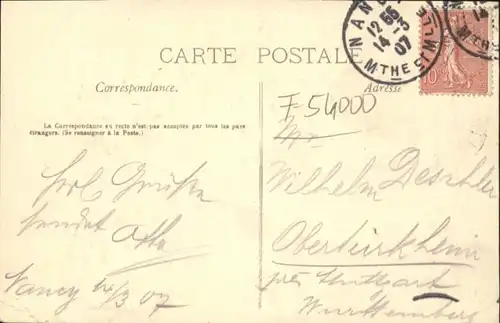 CARTE POSTALE
Correspondance.
Adresse
La Correspondance au recto n'est pas acceptée par tous les pays
étrangers. (Se renseigner à la Poste.)
F 54000
Hrn.
Wilhelm Deschler
Obertürkheim
près Stuttgart
Württemberg
Herzl. Grüße
sendet Otto
Nancy 14/3 07
NAN
12 55
14 -3
07
MTHE ET MLLE
MTHE
10